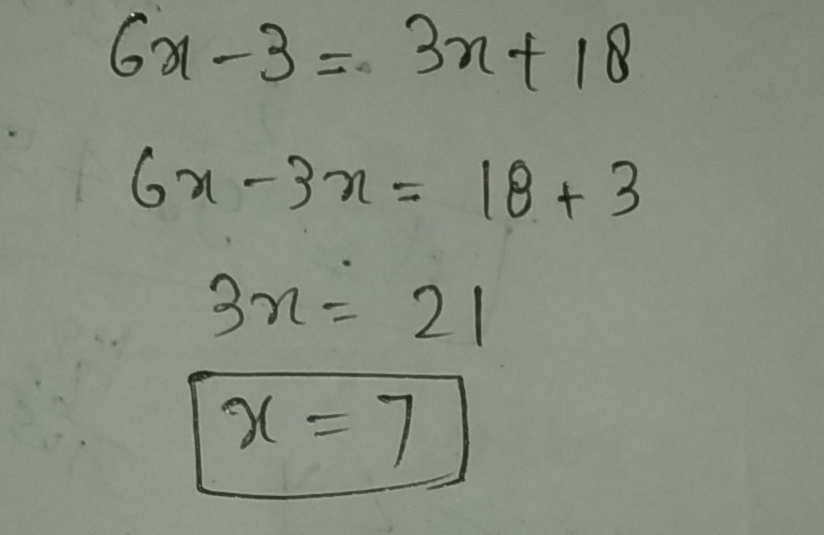 6x - 3 = 3x + 18
6x - 3x = 18 + 3
3x = 21
x = 7